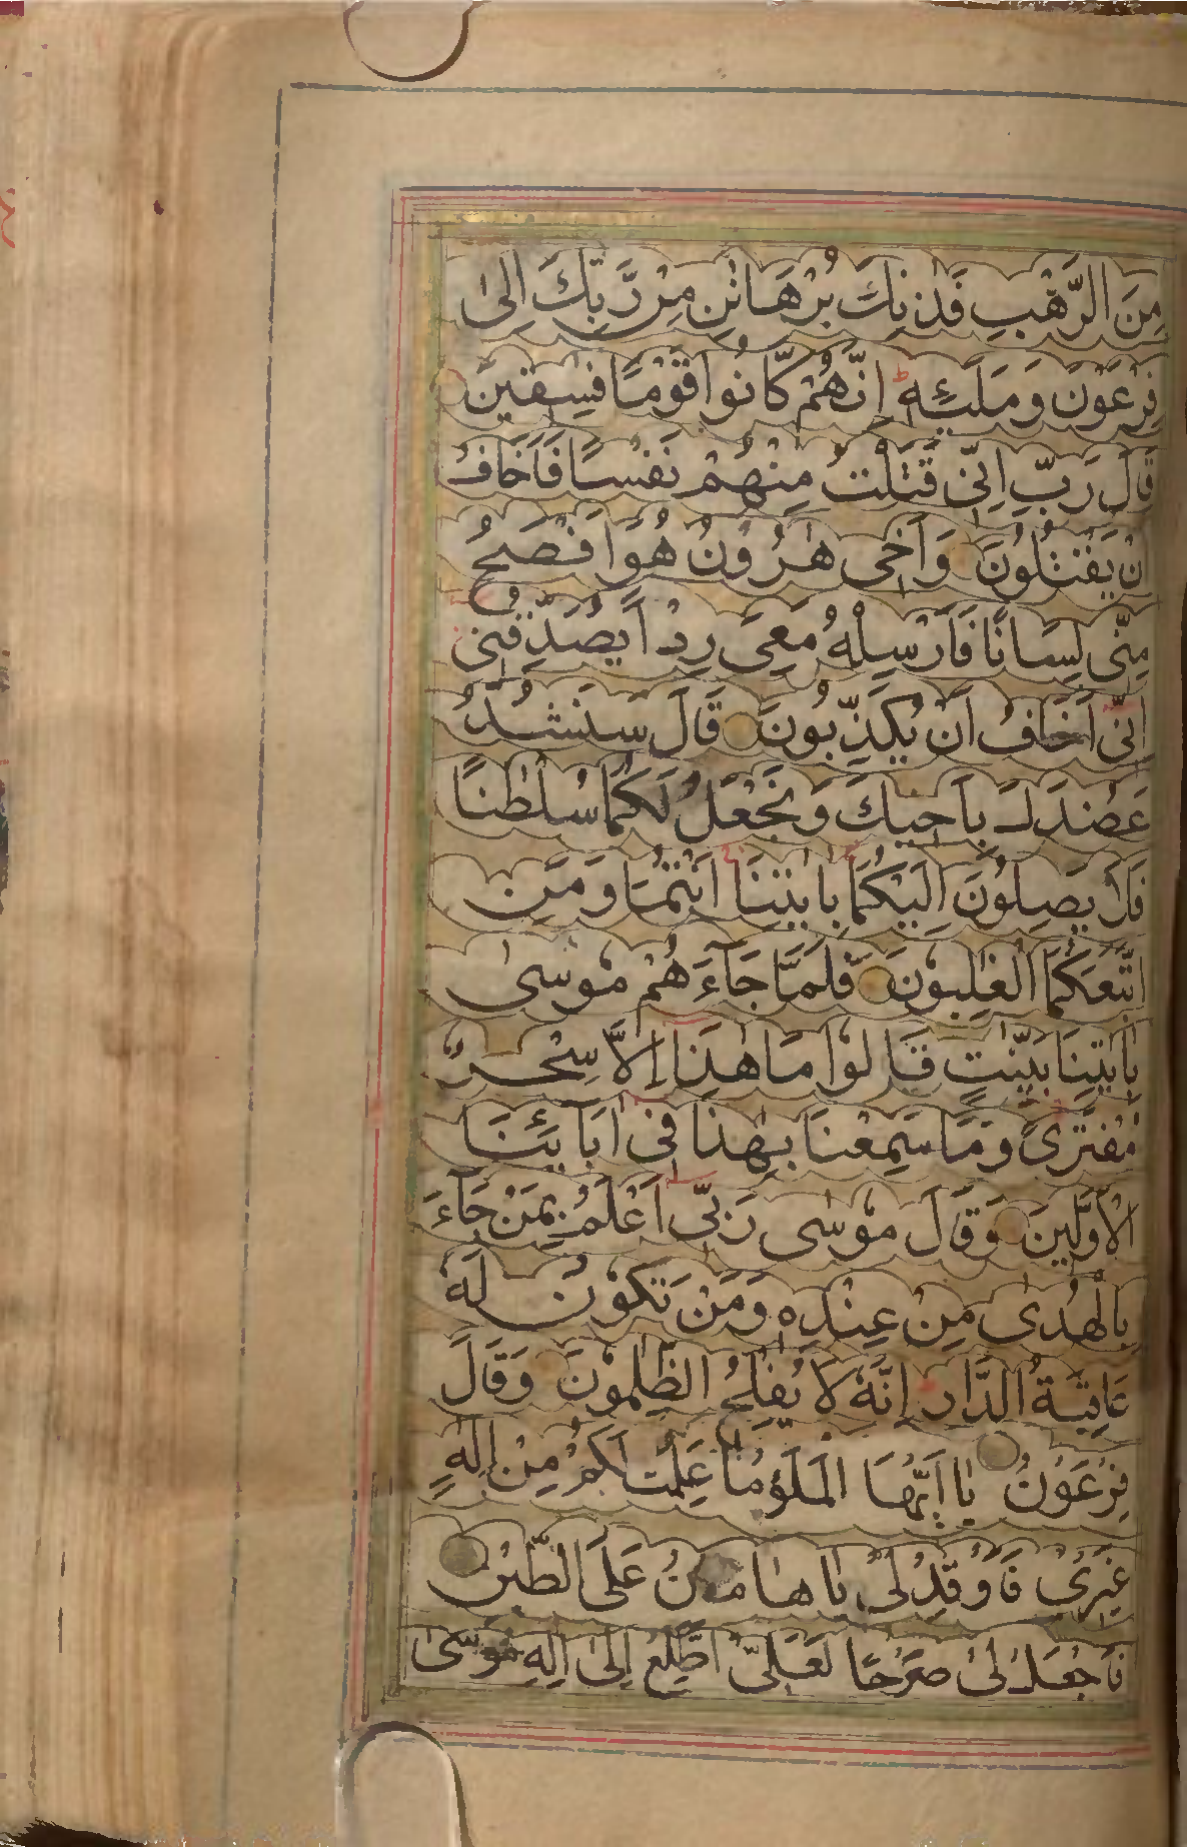 مِنَ الرَّهْبِ فَذٰنِكَ بُرْهَانٰنِ مِنْ رَّبِّكَ اِلٰى
فِرْعَوْنَ وَمَلَئِهٖ ط اِنَّهُمْ كَانُوا قَوْمًا فٰسِقِينَ
قَالَ رَبِّ اِنِّى قَتَلْتُ مِنْهُمْ نَفْسًا فَاَخَافُ
انْ يَقْتُلُونَ وَاَخِى هٰرُوْنُ هُوَ اَفْصَحُ
مِنِّى لِسَانًا فَاَرْسِلْهُ مَعِىَ رِدْاً يُصَدِّقُنِى
اِنِّى اَخَافُ اَنْ يُكَذِّبُونَ قَالَ سَنَشُدُّ
عَضُدَكَ بِاَخِيكَ وَنَجْعَلُ لَكُمَا سُلْطٰنًا
فَلَا يَصِلُوْنَ اِلَيْكُمَا بِاٰيٰتِنَا اَنْتُمَا وَمَنِ
اتَّبَعَكُمَا الْغٰلِبُوْنَ فَلَمَّا جَآءَهُمْ مُوْسٰى
بِاٰيٰتِنَا بَيِّنٰتٍ قَالُوْا مَا هٰذَا اِلَّا سِحْرٌ
مُفْتَرًى وَمَا سَمِعْنَا بِهٰذَا فِى اٰبَائِنَا
الْاَوَّلِينَ وَقَالَ مُوسٰى رَبِّى اَعْلَمُ بِمَنْ جَآءَ
بِالْهُدٰى مِنْ عِنْدِهٖ وَمَنْ تَكُوْنُ لَهٗ
عَاقِبَةُ الدَّارِ اِنَّهٗ لَا يُفْلِحُ الظّٰلِمُوْنَ وَقَالَ
فِرْعَوْنُ يٰا اَيُّهَا الْمَلَؤُ مَا عَلِمْتُ لَكُمْ مِنْ اِلٰهٍ
غَيْرِىْ فَاَوْقِدْ لِىْ يٰا هَامٰنُ عَلَى الطِّيْنِ
فَاجْعَلْ لِىْ صَرْحًا لَعَلِّىْ اَطَّلِعُ اِلٰى اِلٰهِ مُوسٰى